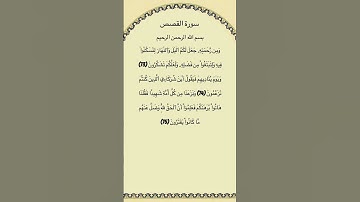 سورة القصص
بسم الله الرحمن الرحيم
وَمِن رَّحْمَتِهِ جَعَلَ لَكُمُ اللَّيْلَ وَالنَّهَارَ لِتَسْكُنُوا
فِيهِ وَلِتَبْتَغُوا مِن فَضْلِهِ وَلَعَلَّكُمْ تَشْكُرُونَ (73)
وَيَوْمَ يُنَادِيهِمْ فَيَقُولُ أَيْنَ شُرَكَائِيَ الَّذِينَ كُنتُمْ
تَزْعُمُونَ (74) وَنَزَعْنَا مِن كُلِّ أُمَّةٍ شَهِيدًا فَقُلْنَا
هَاتُوا بُرْهَانَكُمْ فَعَلِمُوا أَنَّ الْحَقَّ لِلَّهِ وَضَلَّ عَنْهُم
مَّا كَانُوا يَفْتَرُونَ (75)